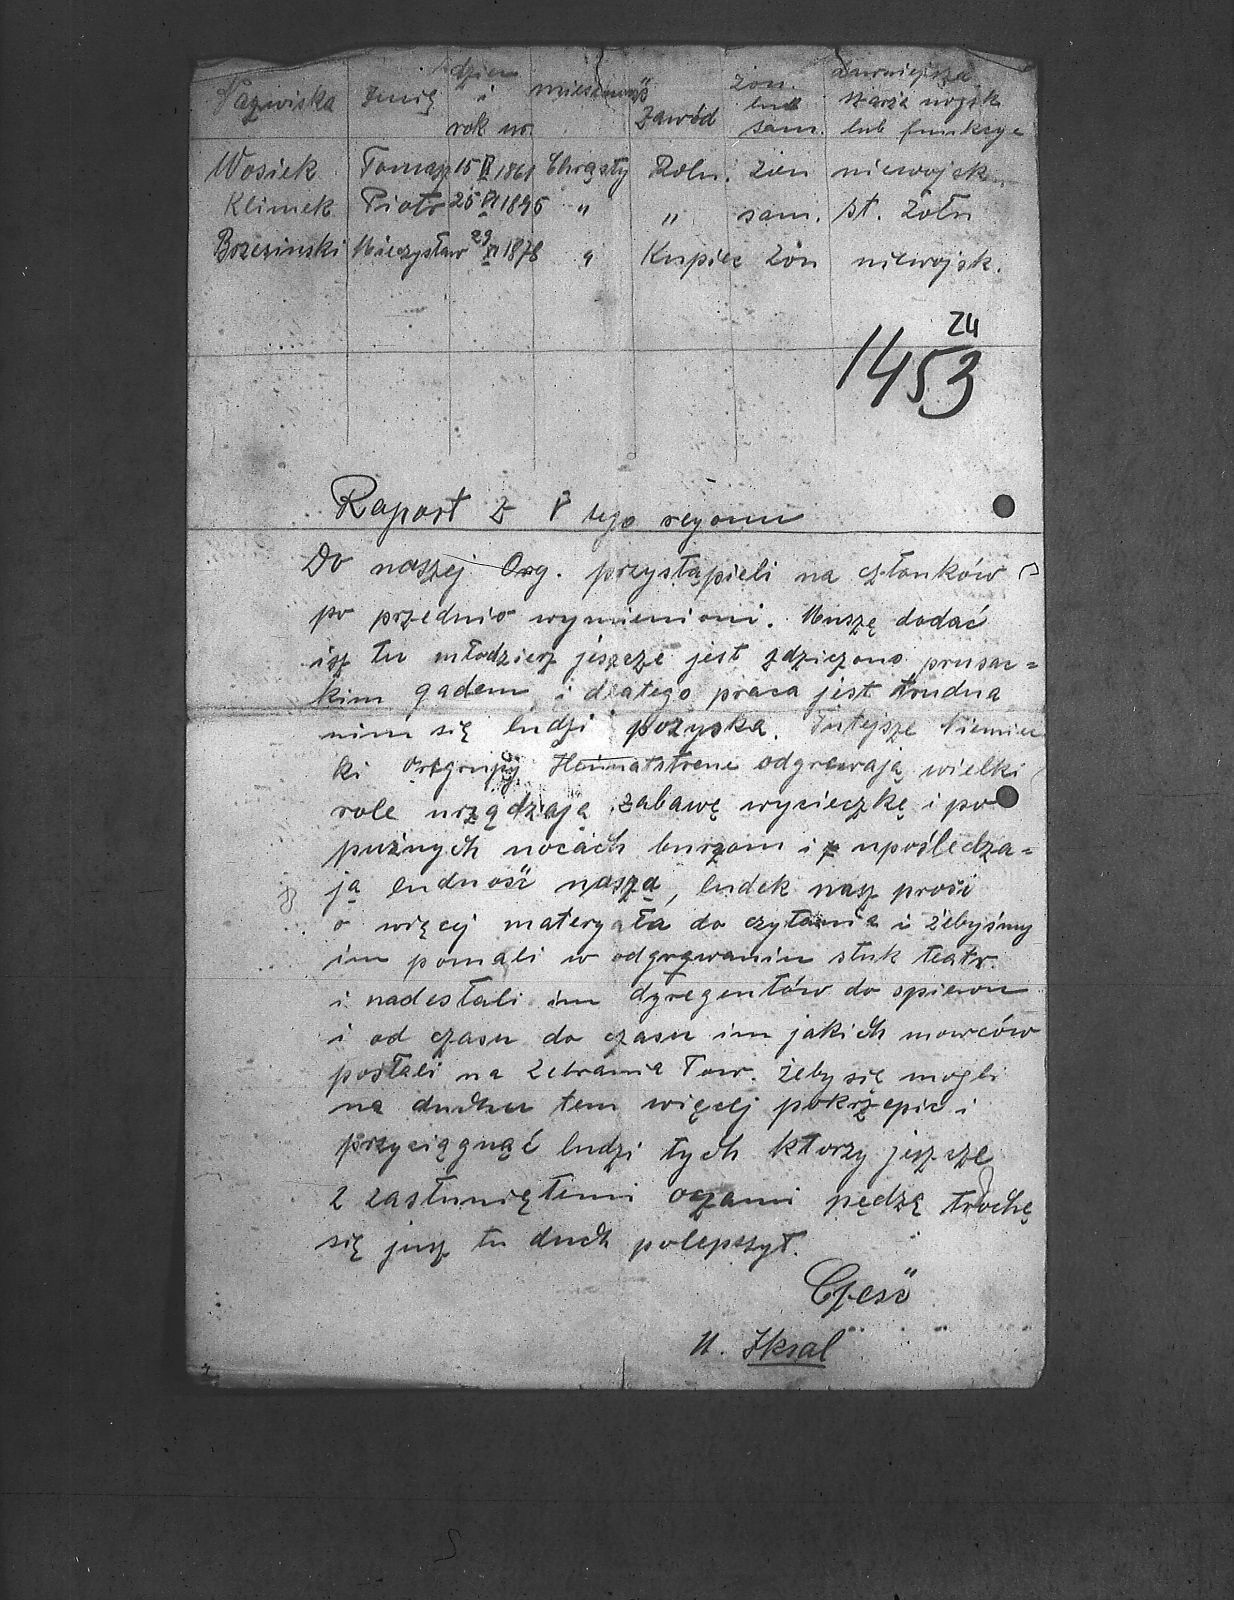 Nazwiska Imię dzień i rok ur. miescowość Zawód żon. lub sam. dawniejsza szarża wojsk lub funkcye
Wosiek Tomasz 15 II 1861 Chrąsty Roln. żon niewojsk.
Klimek Piotr 25 VI 1895 " " sam. st. żołn
Brzezinski Mieczysław 29 XI 1878 " Kupiec żon niewojsk.
24
1453
Raport z V tego reyonu
Do naszej Org. przystąpieli na członków
po przednio wymienioni. Muszę dodać
isz tu młodziesz jeszcze jest zdziczono prusac=
kim gadem i dlatego praca jest trudna
nim się ludzi pozyska. Tutejsze Niemiec
ki Ortgrupy Heimatstreue odgrewają wielki
role urządzają zabawę wycieczkę i po
puźnych nocach burzom i upośledza=
ją ludność naszą, ludek nasz prosi
o więcej materyała do czytania i żebyśmy
im pomali w odgrywaniu stuk teatr.
i nadesłali im dyregentów do spiewu
i od czasu do czasu im jakich mowców
posłali na Zebrania Tow. żeby się mogli
na duchu tem więcej pokrzepić i
przyciągnąć ludzi tych ktorzy jeszcze
z zasłuniętemi oczami pędzą trochę
się jusz tu duch polepszył.
Cześć
N. Iksal